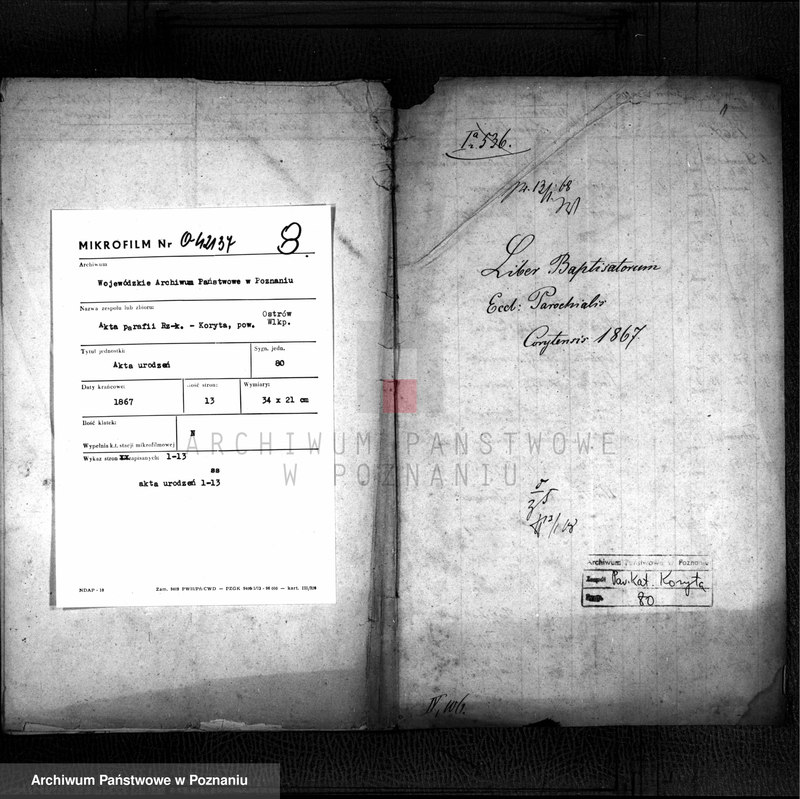 MIKROFILM Nr O-42137 8
Archiwum:
Wojewódzkie Archiwum Państwowe w Poznaniu
Nazwa zespołu lub zbioru:
Akta parafii Rz-k. - Koryta, pow. Ostrów Wlkp.
Tytuł jednostki:
Akta urodzeń
Sygn. jedn.
80
Daty krańcowe:
1867
Ilość stron:
13
Wymiary:
34 x 21 cm
Ilość klatek:
N
Wypełnia k.t. stacji mikrofilmowej
Wykaz stron zapisanych: 1-13
ss
akta urodzeń 1-13
NDAP - 18
536.
Liber Baptisatorum
Eccl: Parochialis
Corytensis 1867.
Archiwum Państwowe w Poznaniu
Zespół Par. Kat. Koryta
80
ARCHIWUM PAŃSTWOWE
W POZNANIU
Archiwum Państwowe w Poznaniu